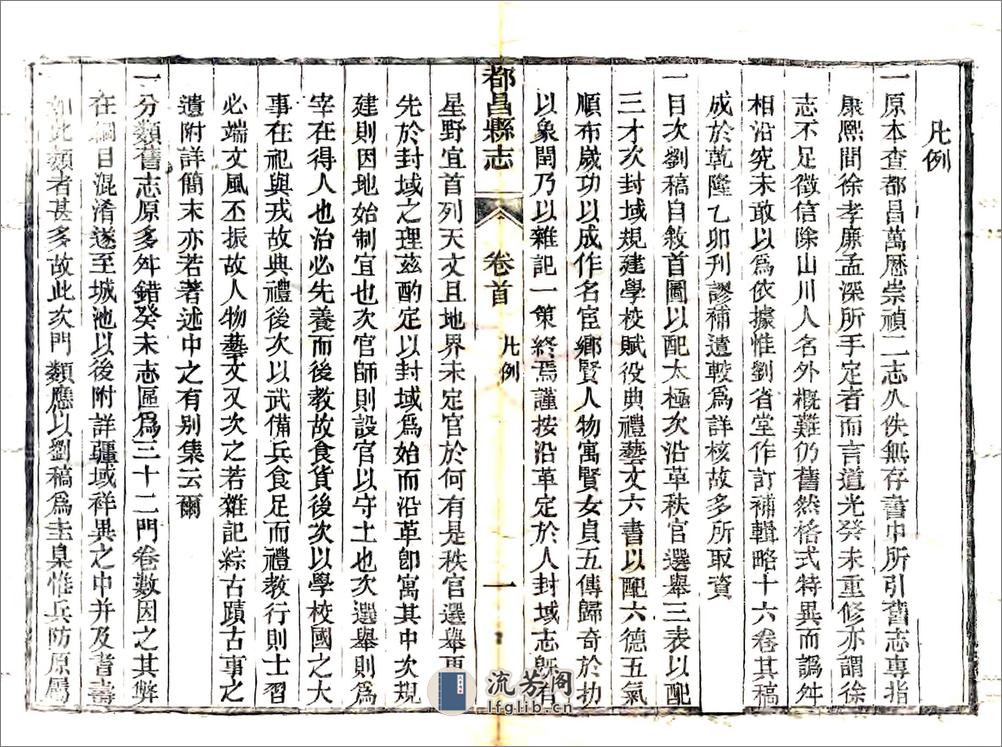 凡例
一原本查都昌萬厯崇禎二志久佚無存書中所引舊志專指
康熙間徐孝廉孟深所手定者而言道光癸未重修亦謂徐
志不足徵信除山川人名外概難仍舊然格式特異而譌舛
相沿究未敢以爲依據惟劉省堂作訂補輯略十六卷其稿
成於乾隆乙卯刊謬補遺較爲詳核故多所取資
一目次劉稿自敘首圖以配太極次沿革秩官選舉三表以配
三才次封域規建學校賦役典禮藝文六書以配六德五氣
順布歲功以成作名宦鄉賢人物寓賢女貞五傳歸奇於扐
以象閏乃以雜記一策終焉謹按沿革定於人封域志旣有
都昌縣志
卷首
凡例
一
星野宜首列天文且地界未定官於何有是秩官選舉更
先於封域之理茲酌定以封域爲始而沿革卽寓其中次規
建則因地始制宜也次官師則設官以守土也次選舉則爲
宰在得人也治必先養而後教故食貨後次以學校國之大
事在祀與戎故典禮後次以武備兵食足而禮教行則士習
必端文風丕振故人物藝文又次之若雜記綜古蹟古事之
遺附詳簡末亦若著述中之有別集云爾
一分類舊志原多舛錯癸未志區爲三十二門卷數因之其弊
在綱目混淆遂至城池以後附詳疆域祥異之中并及耆壽
如此類者甚多故此次門類應以劉稿爲圭臬惟兵防原屬
流芳閣
lfglib.cn